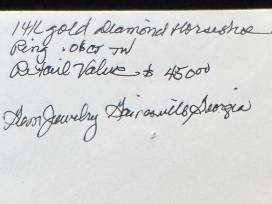 14K gold Diamond Horseshoe
Ring .06ct TW
Retail Value $ 450.00
Gem Jewelry Gainesville Georgia